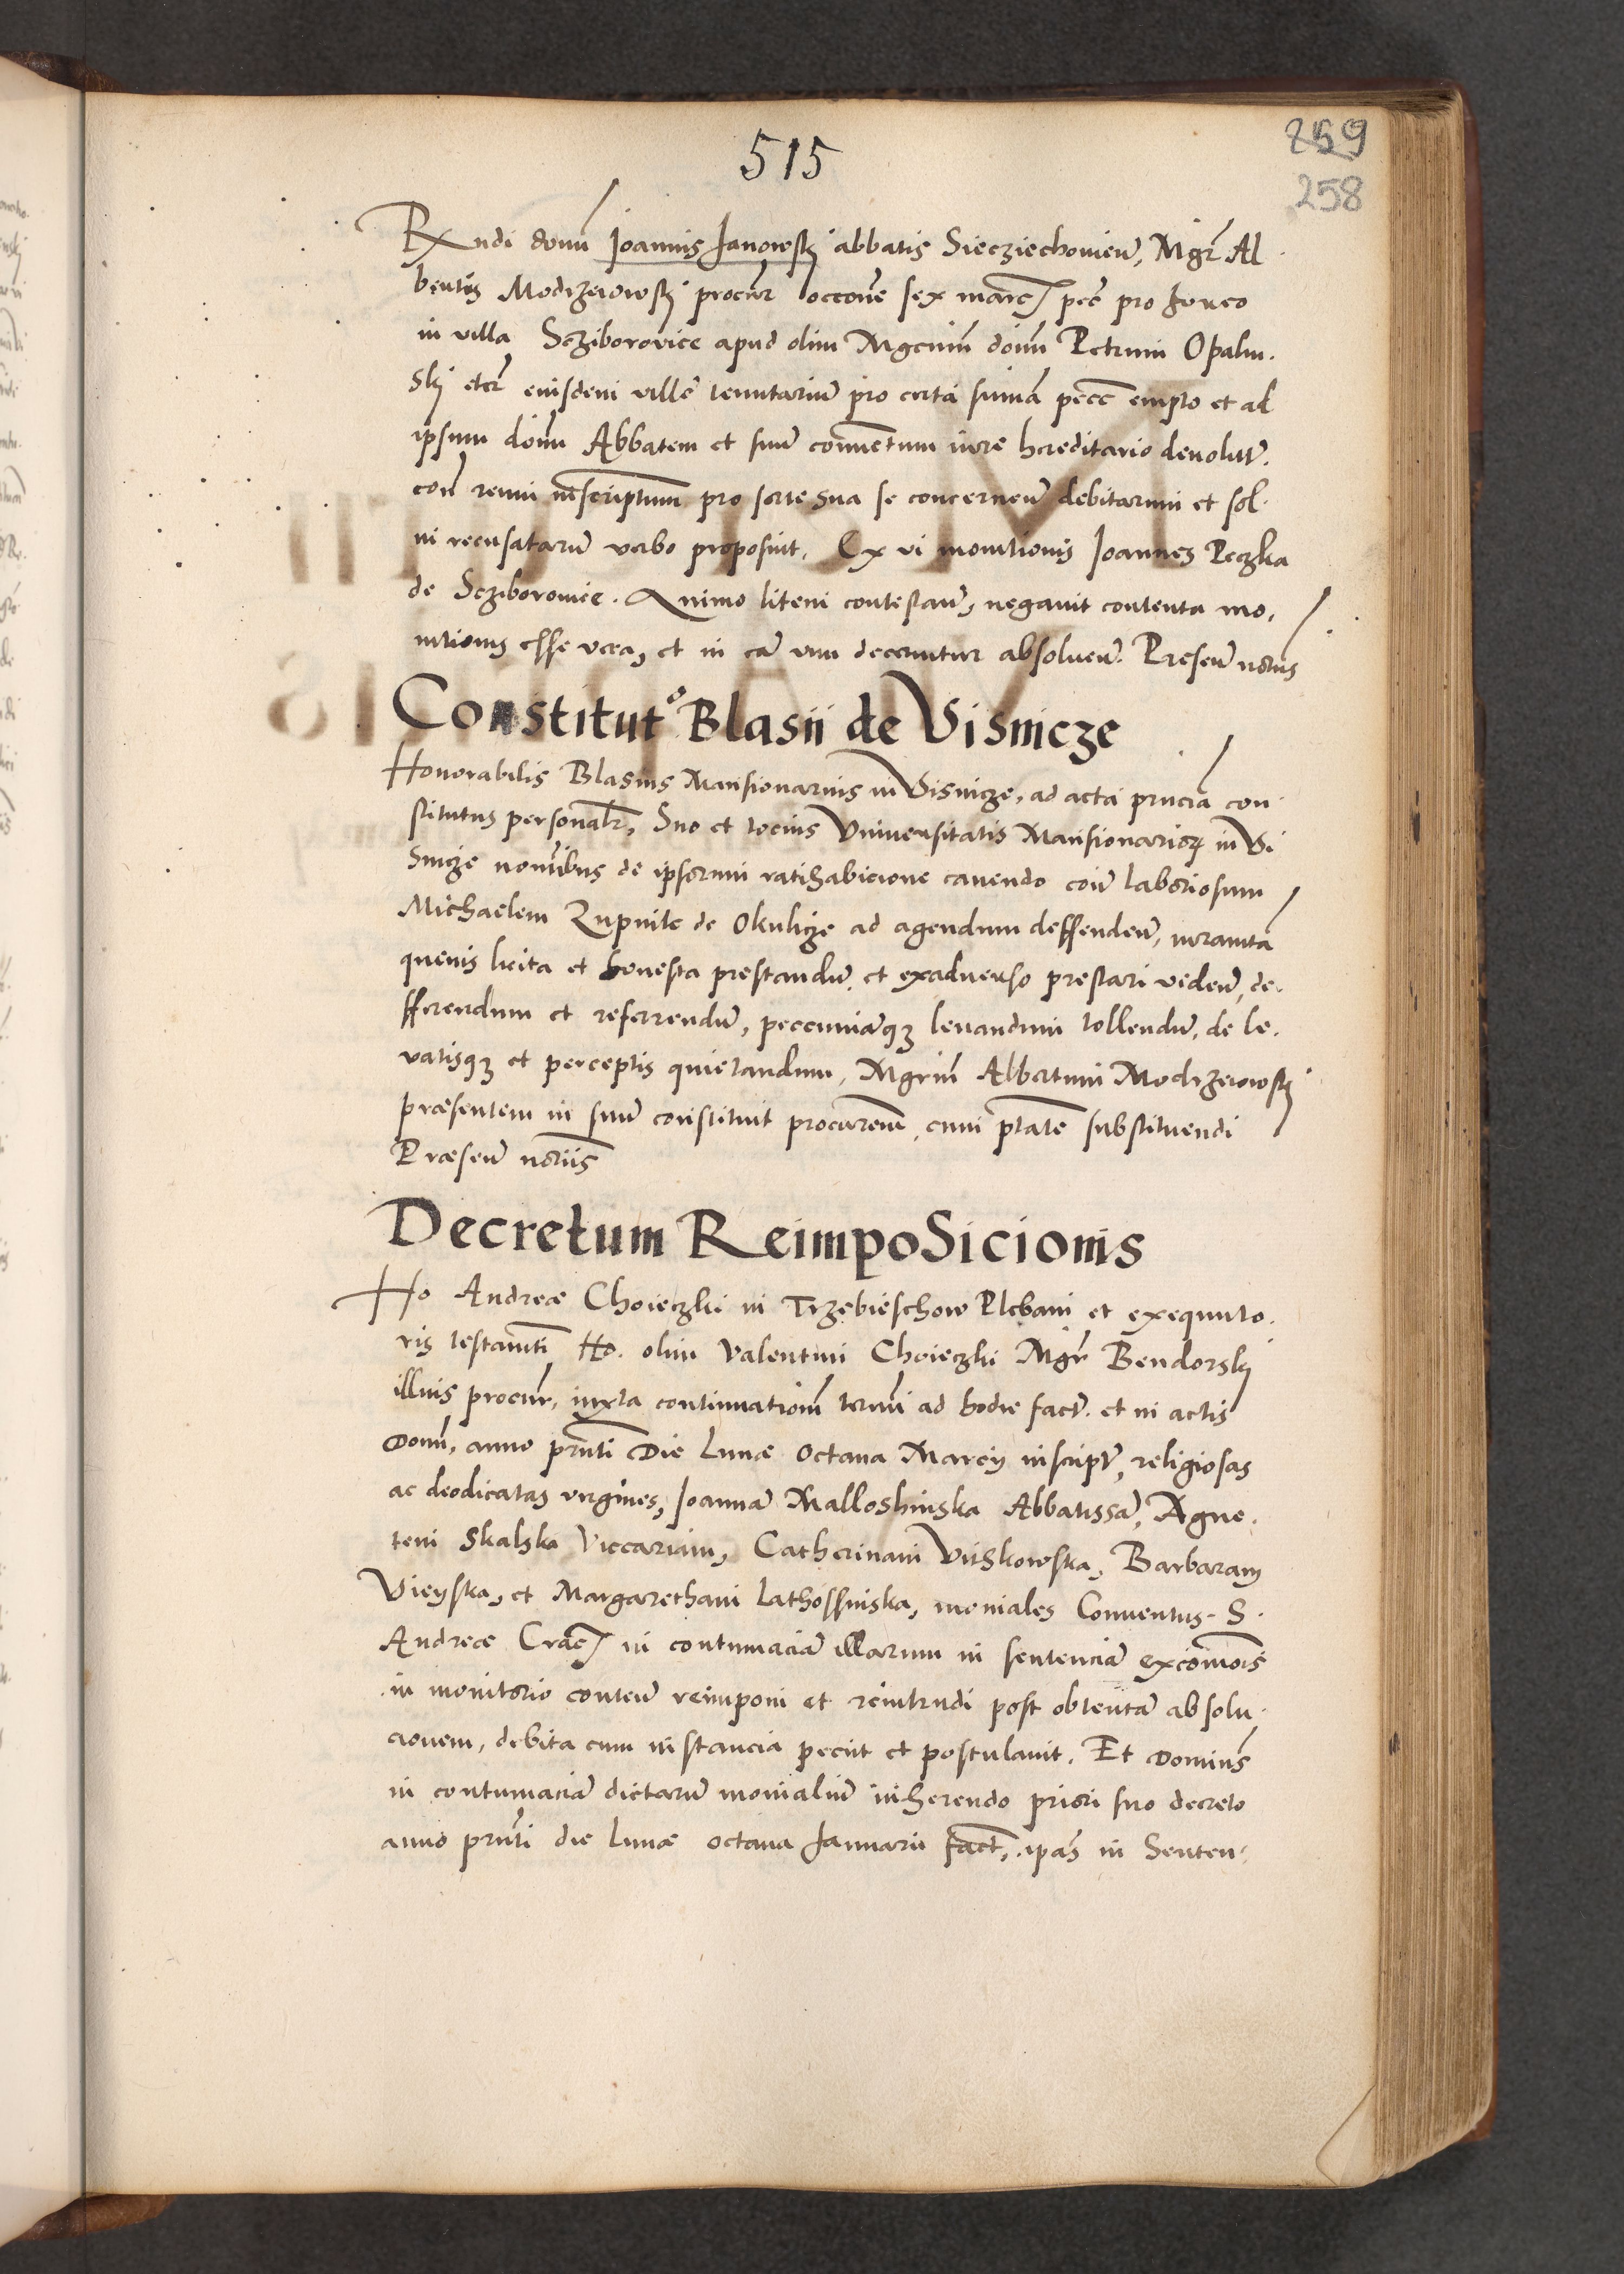 515
259
258
Rndi domi Joannis Janowskj abbatis Siecziechovien, Mgr Al
bertus Modrzewowskj procur occone sex marc pec pro foveo
in villa Scziborovice apud olim Mgcum domi Petrum Opalin
skj etc eiusdem ville tenutarium pro certa summa pecc empto et ad
ipsum domi Abbatem et suum conventum iure hereditario devolut.
con reum inscriptum pro sorte sua se concernen debitarum et sol
vi recusatarum verbo proposuit. Ex vi monitionis Joannes Peczka
de Scziborovice. Animo litem contestan, negavit contenta mo,
nitionis esse vera, et in ea decernitur absolven. Presen notus
Constitutº Blasii de Visnicze
Honorabilis Blasius Mansionarius in Visnicze, ad acta prncia con
stitutus personalr, Suo et tocius Universitatis Mansionarior in Vi
snicze nominibus de ipsorum ratihabicione cavendo coium laboriosum
Michaelem Zupnik de Okulicze ad agendum deffenden, iuramta
quevis licita et honesta prestandum, et exadverso prestari viden, de
fferendum et referrendum, pecuniasqz levandum tollendum, de le
vatisqz et perceptis quietandum, Mgrum Albertum Modrzewowskj
præsentem in suum constituit procurem, cum ptate substituendi
Præsen notiis
Decretum ReimpoSicionis
Ho Andreæ Choieczki in Trzebieschow Plebani et exequuto
ris testamti Ho. olim Valentini Choieczki Mgr Bendorskj
illius procur, iuxta continuationem termi ad hodie fact. et in actis
Domi, anno prnti Die Lunæ Octava Marcij inscript, religiosas
ac deodicatas virgines, Joannam Malloshinska Abbatissam, Agne
tem Skalska Viccariam, Catherinam Viiskowska, Barbaram
Vieyska, et Margaretham Lathossinska, moniales Conventus S.
Andreæ Crac in contumaciam illarum in sentenciam excomois
in monitorio conten reimponi et reintrudi post obtentam absolu
cionem, debita cum instancia peciit et postulavit. Et Dominus
in contumaciam dictarum monialium inherendo priori suo decreto
anno prnti die Lunæ octava Januarii fact, ipas in Senten